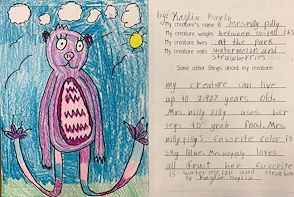 by: Kaylin Kaplin
My creature's name is Mrs.nilly pilly
My creature weighs between 70-140 lbs
My creature lives at the park
My creature eats watermelon and
strawberries
Some other things about my creature:
my creature can live
up to 2,927 years old.
Mrs. nilly pilly uses her
legs to grab food. Mrs.
nilly pilly's favorite color is
sky blue. Mrs.nillypilly loves
all fruit her favorite
is watermelon and strawber
by Kaylin Kaplin